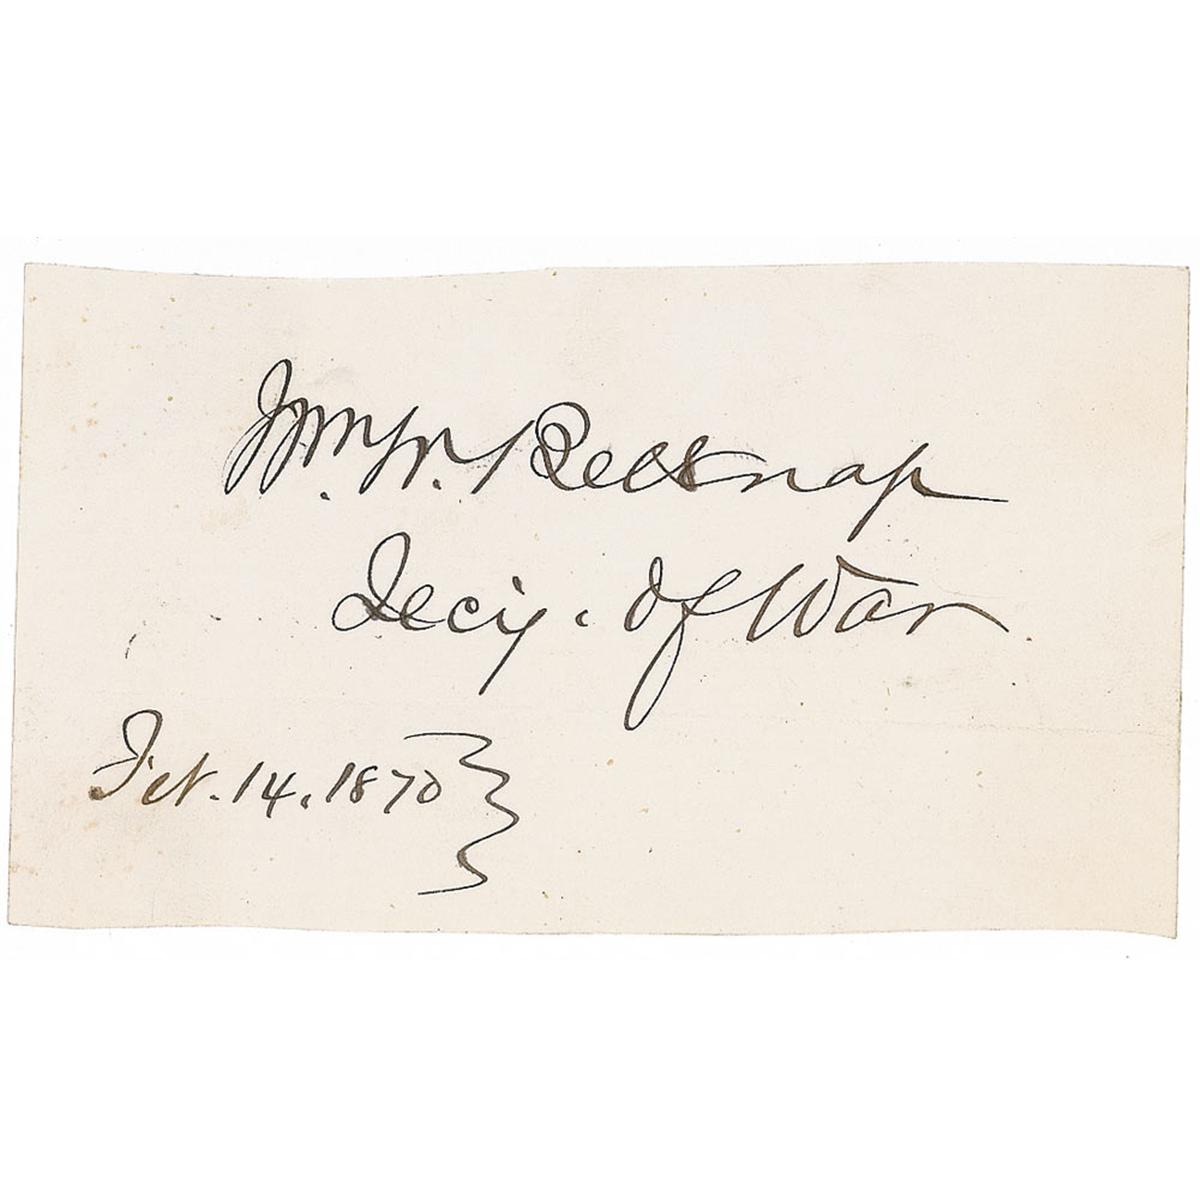 Wm. W. Belknap
Secy. of War
Feb. 14. 1870